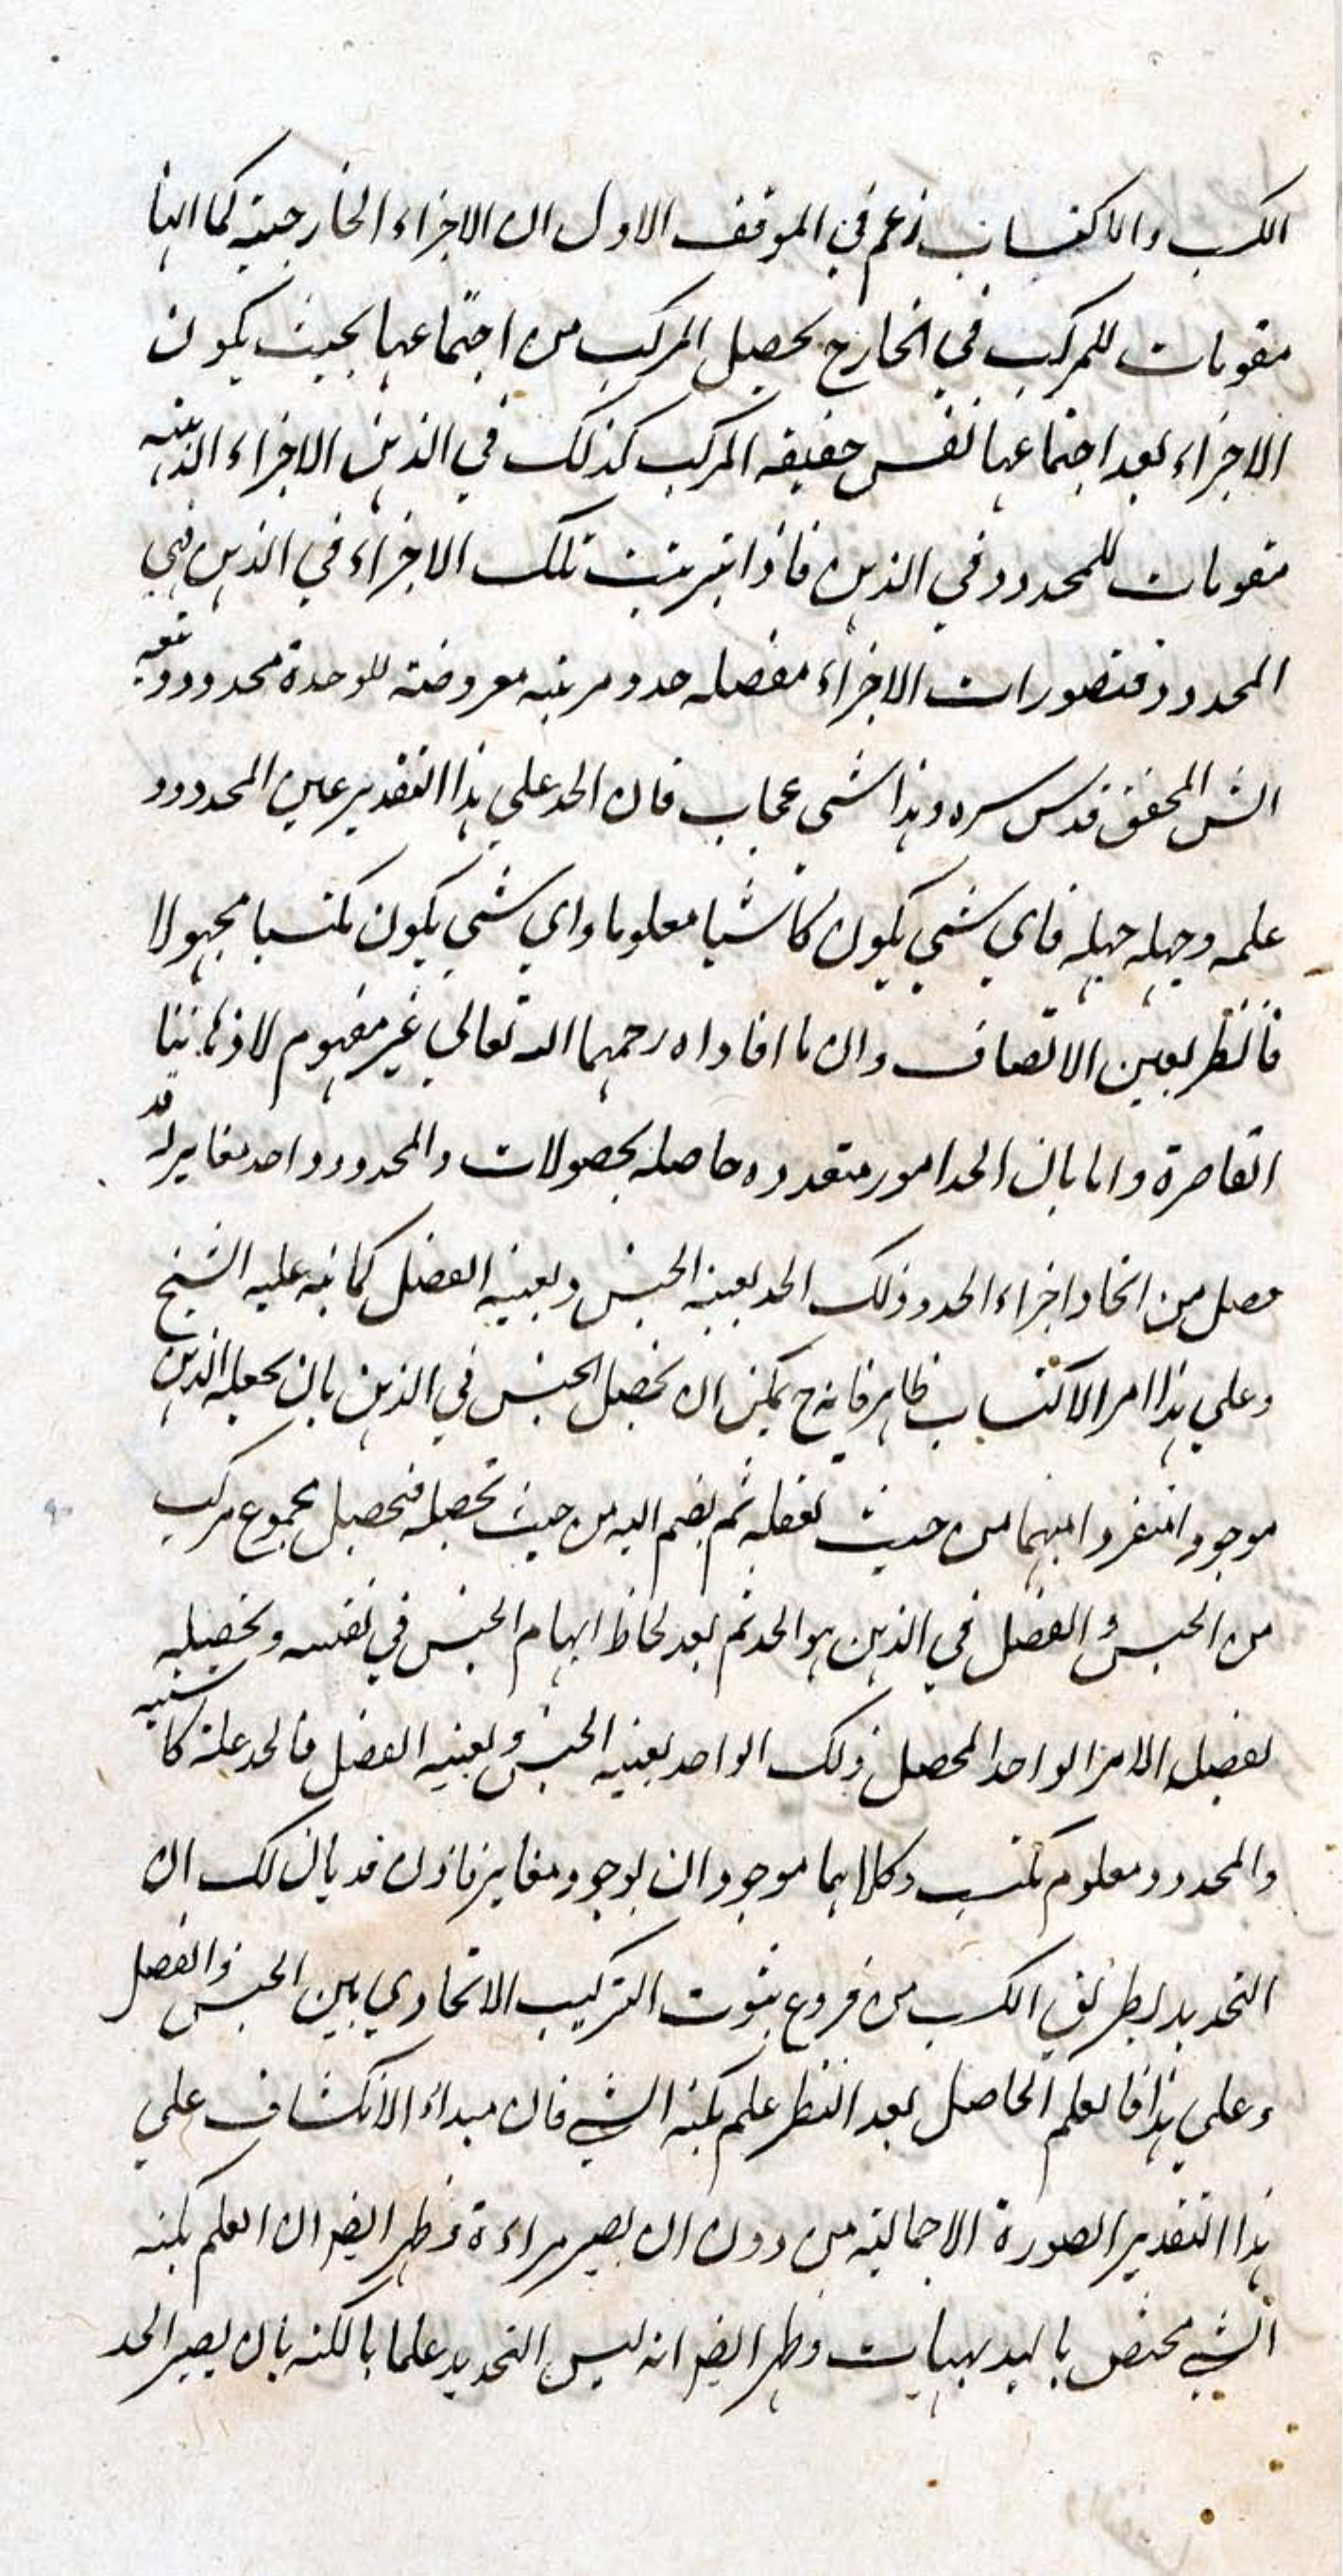 الكسب والاكتساب زعم في الموقف الاول ان الاجزاء الخارجية كما انها
مقومات للمركب في الخارج يحصل المركب من اجتماعها بحيث يكون
الاجزاء بعد اجتماعها نفس حقيقه المركب كذلك في الذهن الاجزاء الذهنيه
مقومات للمحدود في الذهن فاذا ترتبت تلك الاجزاء في الذهن فهي
المحدود فتصورات الاجزاء مفصله حد ومرتبه معروضة للوحدة محدود وتبعه
الش المحقق قدس سره وهذا شي عجاب فان الحد علي هذا التقدير عين المحدود
علمه وجهله جهله فاي شي يكون كاشبا معلوما واي شي يكون مكتسبا مجهولا
فانظر بعين الانصاف وان ما افاداه رحمهما الله تعالي غير مفهوم لاذهاننا
القاصرة واما بان الحد امور متعدده حاصله بحصولات والمحدود واحد مغاير له قد
حصل من اتحاد اجزاء الحد وذلك الحد بعينه الجنس وبعينه الفصل كما نبه عليه الشيخ
وعلي هذا امر الاكتساب ظاهر فانه ح يمكن ان يحصل الجنس في الذهن بان يجعله الذهن
موجودا منفردا مبهما من حيث تعقله ثم يضم اليه من حيث تحصله فتحصل مجموع مركب
من الجنس والفصل في الذهن هو الحد ثم بعد لحاظ ابهام الجنس في نفسه وتحصيله
بفصيل الامر الواحد المحصل ذلك الواحد بعينه الجنس وبعينه الفصل فالحد علة كاسبيه
والمحدود معلوم مكتسب وكلاهما موجودان بوجود مغاير فاذن قد بان لك ان
التحديد بطريق الكسب من فروع ثبوت التركيب الاتحادي بين الجنس والفصل
وعلي هذا فالعلم الحاصل بعد النظر علم بكنه الشي فان مبداء الانكشاف علي
هذا التقدير الصورة الاجمالية من دون ان يصير مراءة وظهر ايضا ان العلم بكنه
الشي مختص بالبديهيات وظهر ايضا انه ليس التحديد علما بالكنه بان يصير الحد